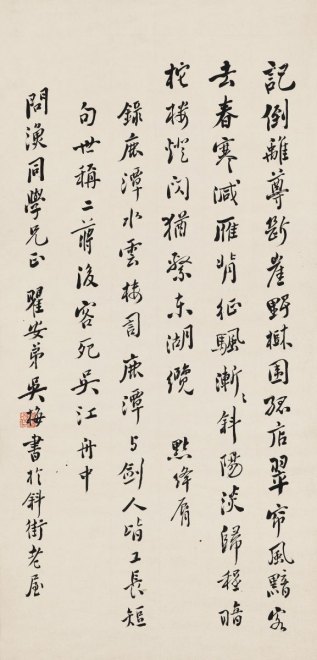 記倒離尊斷崖野樾圍孤店翠帘風黯客
去春寒減雁背征颿漸漸斜陽淡歸程暗
柁樓燈閃猶繫東湖纜 點絳脣
錄鹿潭水雲樓詞鹿潭与劍人皆工長短
句世稱二蔣後客死吳江舟中
問漁同學兄正 瞿安弟吳梅書於斜街老屋